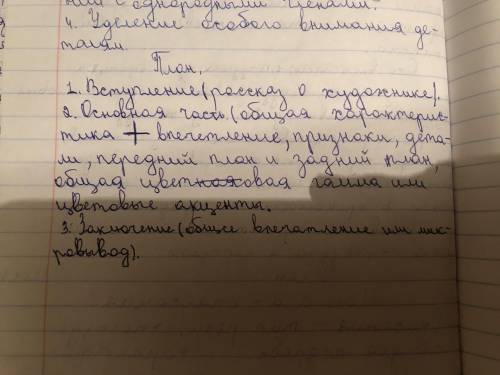 ний с однородными членами.
4. Уделение особого внимания де-
талям.
План.
1. Вступление (рассказ о художнике).
2. Основная часть (общая характерис-
тика + впечатление, признаки, дета-
ли, передний план и задний план,
общая цветовая гамма или
цветовые акценты.
3. Заключение (общее впечатление или мик-
ровывод).